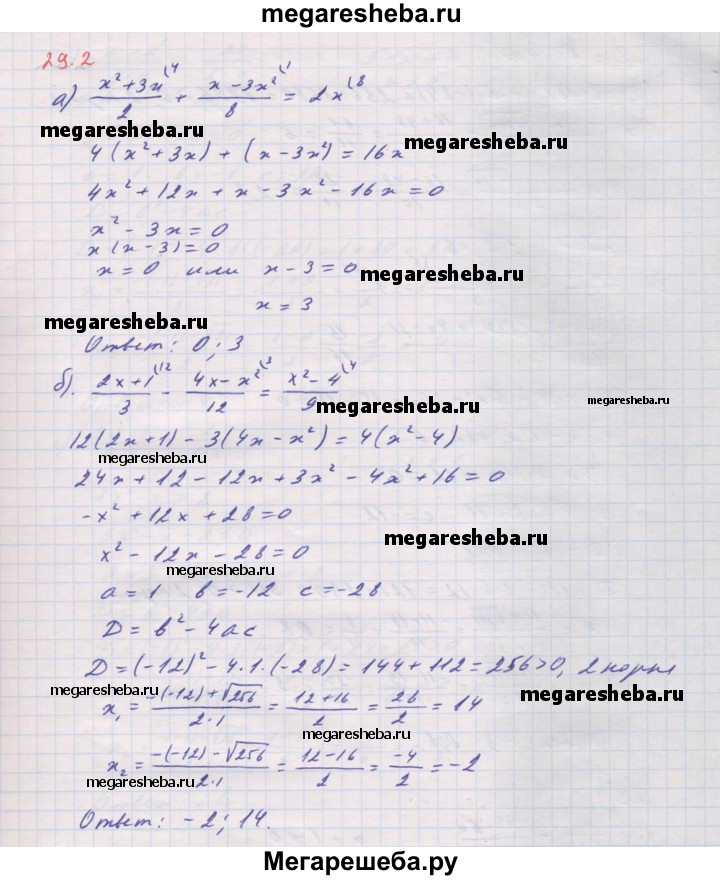 megaresheba.ru
29.2
а) (x²+3x)/2 (4 + (x-3x²)/8 (1 = 2x (8
megaresheba.ru megaresheba.ru
4(x²+3x)+(x-3x²)=16x
4x²+12x+x-3x²-16x=0
x²-3x=0
x(x-3)=0
x=0 или x-3=0 megaresheba.ru
x=3
megaresheba.ru
Ответ: 0; 3
б). (2x+1)/3 (12 - (4x-x²)/12 (3 = (x²-4)/9 (4
megaresheba.ru megaresheba.ru
12(2x+1)-3(4x-x²)=4(x²-4)
megaresheba.ru
24x+12-12x+3x²-4x²+16=0
-x²+12x+28=0
megaresheba.ru
x²-12x-28=0
megaresheba.ru
a=1 b=-12 c=-28
D=b²-4ac
D=(-12)²-4·1·(-28)=144+112=256>0, 2 корня
megaresheba.ru megaresheba.ru
x₁=(-(-12)+√256)/(2·1)=(12+16)/2=28/2=14
megaresheba.ru
x₂=(-(-12)-√256)/(2·1)=(12-16)/2=-4/2=-2
megaresheba.ru megaresheba.ru
Ответ: -2; 14.
Мегарешеба.ру